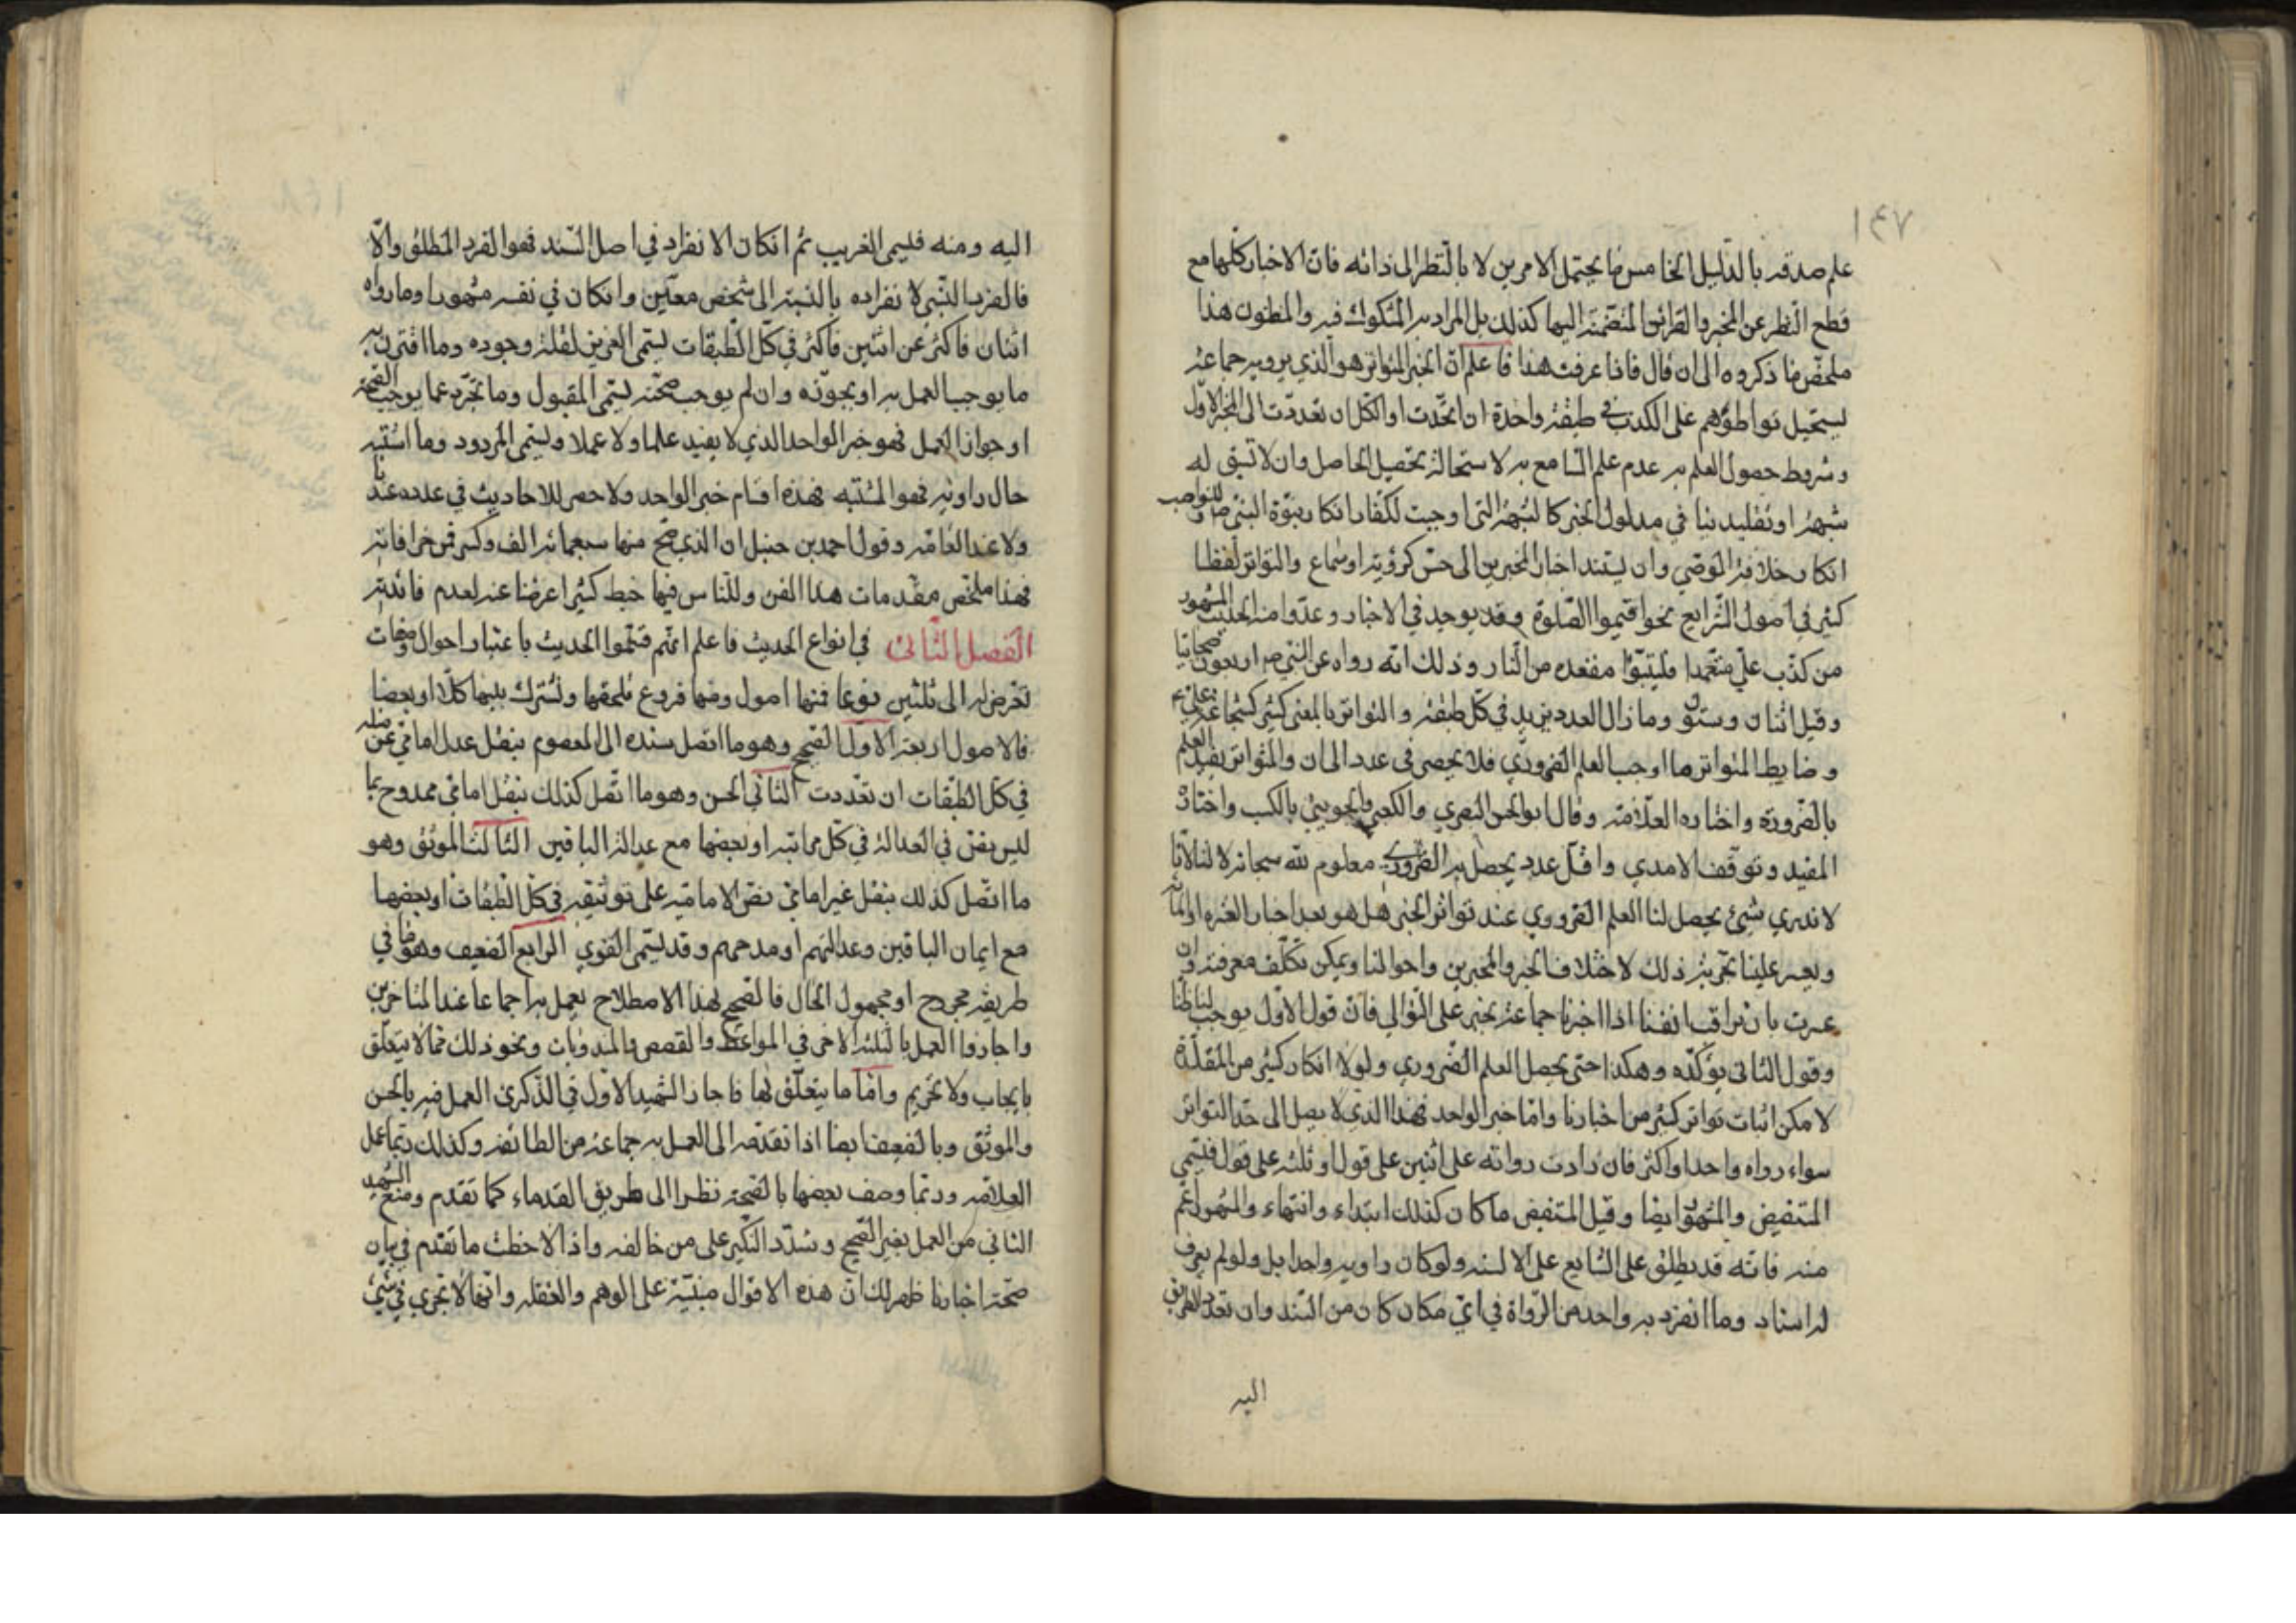 ١٤٧
علم صدقه بالدليل الخامس ما يحتمل الامرين لا بالنظر الى ذاته فان الاخبار كلها مع
قطع النظر عن المخبر والقرائن المنضمة اليها كذلك بل المراد به المشكوك فيه والمظنون هذا
ملخص ما ذكروه الى ان قال فاذا عرفت هذا فاعلم ان الخبر المتواتر هو الذي يرويه جماعة
يستحيل تواطؤهم على الكذب في طبقة واحدة ان اتحدت او الكل ان تعددت الى المخبر الاول
وشروط حصول العلم به عدم علم السامع به لاستحالة تحصيل الحاصل وان لا تسبق له
شبهة او تقليد ينافي مدلول الخبر كالشبهة التي اوجبت للكفار انكار نبوة النبي ص وللنواصب
انكار خلافة الوصي وان يستند اخبار المخبرين الى حس كرؤية او سماع والتواتر لفظا
كثير في اصول الشرايع نحو اقيموا الصلوة وقد يوجد في الاخبار وعدوا منه الحديث المشهور
من كذب علي متعمدا فليتبوا مقعده من النار وذلك انه رواه عن النبي ص اربعون صحابيا
وقيل اثنان وستون وما زال العدد يزيد في كل طبقة والتواتر بالمعنى كثير كشجاعة علي ع
وضابط المتواتر ما اوجب العلم الضروري فلا يحصر في عدد الى ان والمتواتر يفيد العلم
بالضرورة واختاره العلامة وقال ابو الحسن البصري والكعبي والجويني بالكسب واختاره
المفيد وتوقف الامدي واقل عدد يحصل به الضروري معلوم لله سبحانه لا لنا لانا
لا ندري متى يحصل لنا العلم الضروري عند تواتر الخبر هل هو بعد اخبار العشرة او المائة
ويعسر علينا تجربة ذلك لاختلاف الخبر والمخبرين واحوالنا ويمكن تكلف معرفته وان
عسرت بان نراقب انفسنا اذا اخبرنا جماعة بخبر على التوالي فان قول الاول يوجب لنا ظنا
وقول الثاني يؤكده وهكذا حتى يحصل العلم الضروري ولولا انكار كثير من المقلدة
لامكن اثبات تواتر كثير من اخبارنا واما خبر الواحد فهذا الذي لا يصل الى حد التواتر
سواء رواه واحد او اكثر فان زادت رواته على اثنين على قول او ثلثة على قول فيسمى
المستفيض والمشهور ايضا وقيل المستفيض ما كان كذلك ابتداء وانتهاء والمشهور اعم
منه فانه قد يطلق على الشايع على الالسنة ولو كان راويه واحدا بل ولو لم يعرف
له اسناد وما انفرد به واحد من الرواة في اي مكان كان من السند وان تعدد الطريق
اليه
اليه ومنه فيسمى الغريب ثم ان كان الانفراد في اصل السند فهو الفرد المطلق والا
فالفرد النسبي لانفراده بالنسبة الى شخص معين وان كان في نفسه مشهورا وما رواه
اثنان فاكثر عن اثنين فاكثر في كل الطبقات يسمى العزيز لقلة وجوده وما اقترن به
ما يوجب العمل به او يجوزه وان لم يوجب صحته يسمى المقبول وما تجرد عما يوجب الصحة
او جواز العمل فهو خبر الواحد الذي لا يفيد علما ولا عملا ويسمى المردود وما اشتبه
حال راويه فهو المشتبه فهذه اقسام خبر الواحد ولا حصر للاحاديث في عدد عندنا
ولا عند العامة وقول احمد بن حنبل ان الذي صح منها سبعمائة الف وكسر فمن خرافاته
فهذا ملخص مقدمات هذا الفن وللناس فيها خبط كثير اعرضنا عنه لعدم فائدته
الفصل الثاني في انواع الحديث فاعلم انهم قسموا الحديث باعتبار احوال وصفات
تعرض له الى ثلثين نوعا فمنها اصول ومنها فروع ملحقها وتشترك بينها كلا او بعضا
فالاصول اربعة الاول الصحيح وهو ما اتصل سنده الى المعصوم بنقل عدل امامي عن مثله
في كل الطبقات ان تعددت الثاني الحسن وهو ما اتصل كذلك بنقل امامي ممدوح بما
ليس بنص في العدالة في كل مراتبه او بعضها مع عدالة الباقين الثالث الموثق وهو
ما اتصل كذلك بنقل غير امامي نص الامامية على توثيقه في كل الطبقات او بعضها
مع ايمان الباقين وعدالتهم او مدحهم وقد يسمى القوي الرابع الضعيف وهو ما في
طريقه مجروح او مجهول الحال فالصحيح بهذا الاصطلاح يعمل به اجماعا عند المتاخرين
واجازوا العمل بالثلثة الاخر في المواعظ والقصص والمندوبات ونحو ذلك مما لا يتعلق
بايجاب ولا تحريم واما ما يتعلق بها فاجاز الشهيد الاول في الذكرى العمل فيه بالحسن
والموثق وبالضعيف ايضا اذا تقدمه الى العمل به جماعة من الطائفة وكذلك ربما عمل
العلامة وربما وصف بعضها بالصحة نظرا الى طريق القدماء كما تقدم ومنع الشهيد
الثاني من العمل بغير الصحيح وشدد النكير على من خالفه واذا لاحظت ما تقدم في بيان
صحة اخبارنا ظهر لك ان هذه الاقوال مبنية على الوهم والغفلة وانها لا تجري في شيء